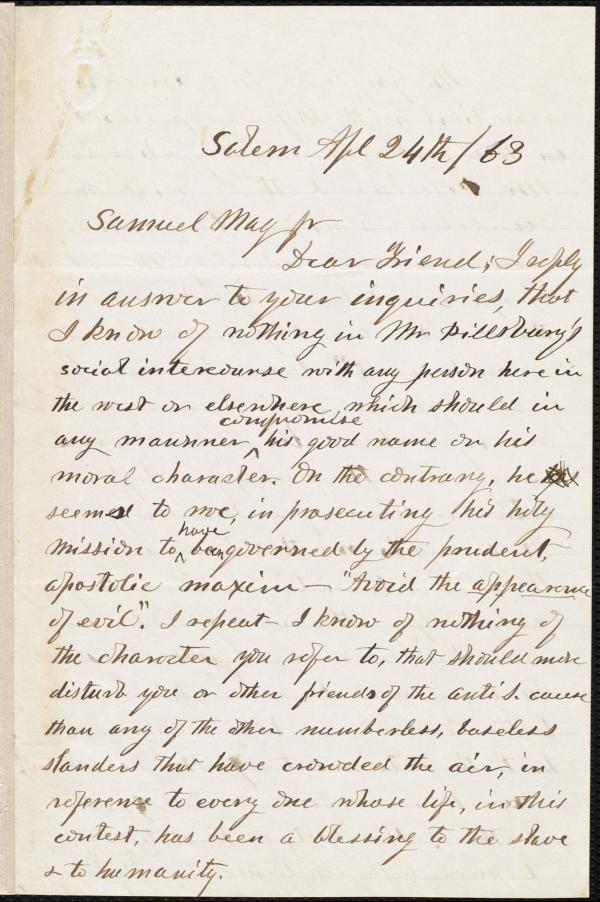 Salem Apl 24th/63
Samuel May Jr
Dear Friend; I reply
in answer to your inquiries, that
I know of nothing in Mr Pillsbury's
social intercourse with any person here in
the west or elsewhere, which should in
any mannner compromise his good name or his
moral character. On the contrary, he
seemed to me, in prosecuting his holy
mission to have been governed by the prudent,
apostolic maxim – "Avoid the appearance
of evil". I repeat – I know of nothing of
the character you refer to, that should more
disturb you or other friends of the anti S. cause
than any of the other numberless, baseless
slanders that have crowded the air, in
reference to every one whose life, in this
contest, has been a blessing to the slave
& to humanity.